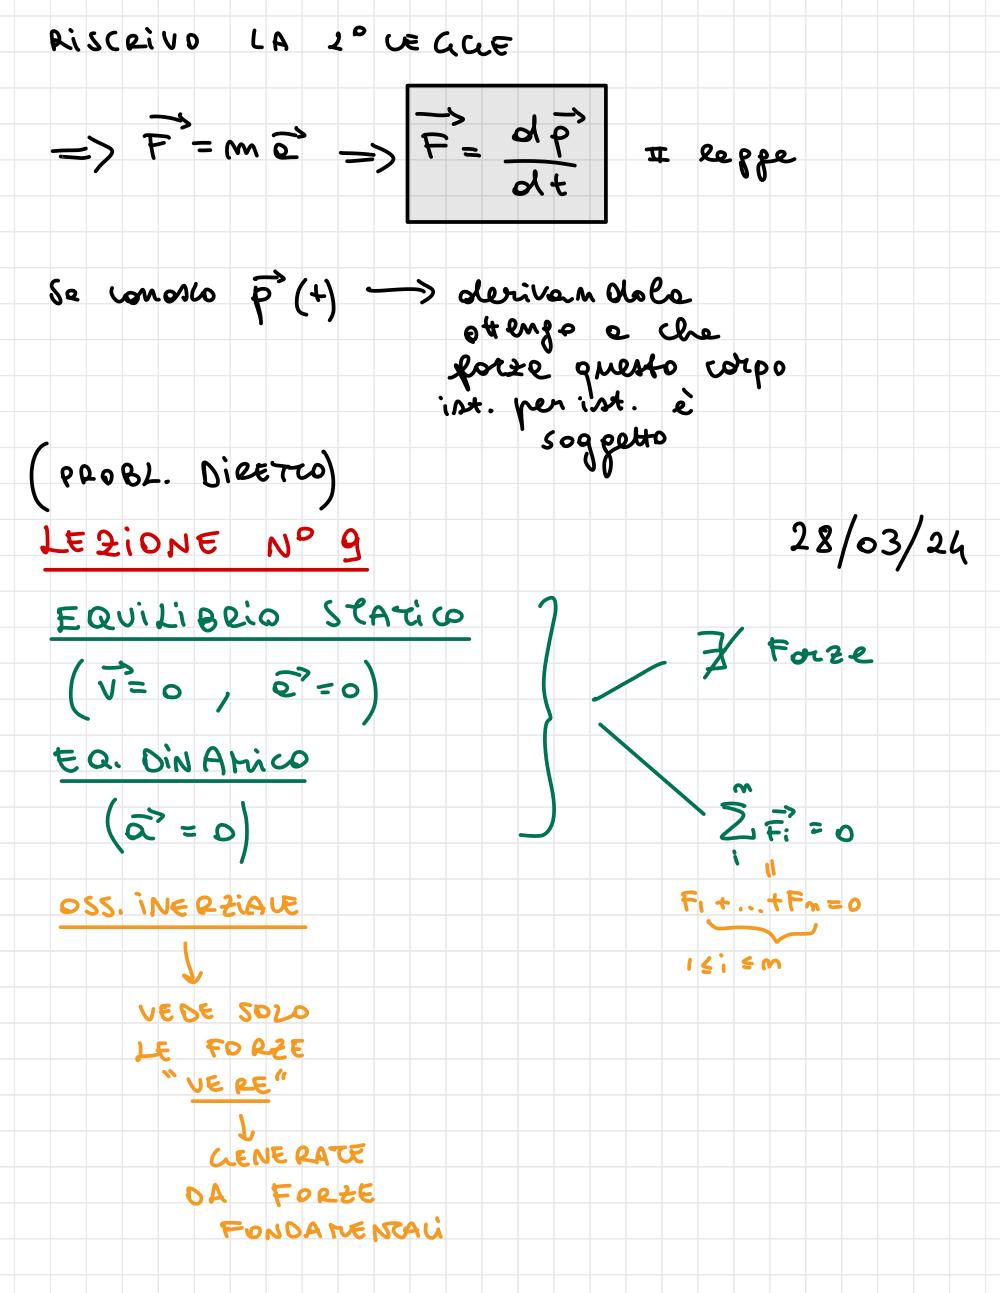 RISCRIVO LA 2° LEGGE
=> F⃗ = m a⃗ => F⃗ = dp⃗/dt II legge
Se conosco p⃗(t) → derivandola
ottengo a che
forze questo corpo
ist. per ist. è
soggetto
(PROBL. DIRETTO)
LEZIONE N° 9 28/03/24
EQUILIBRIO STATICO
(v⃗ = 0, a⃗ = 0)
∄ Forze
EQ. DINAMICO
(a⃗ = 0)
∑ᵢⁿ F⃗ᵢ = 0
"
OSS. INERZIALE
F₁ + ... + Fₙ = 0
1 ≤ i ≤ n
↓
VEDE SOLO
LE FORZE
"VERE"
↓
GENERATE
DA FORZE
FONDAMENTALI